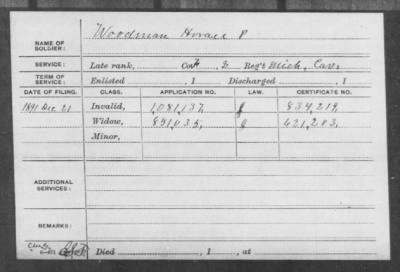 NAME OF SOLDIER: Woodman Horace P
SERVICE: Late rank, Co. Reg't Mich. Cav.
TERM OF SERVICE: Enlisted , 1 Discharged , 1
DATE OF FILING. CLASS. APPLICATION NO. LAW. CERTIFICATE NO.
1891 Dec. 21 Invalid, 1,081,137, 834,219,
Widow, 851,035, 621,203,
Minor,
ADDITIONAL SERVICES:
REMARKS:
Died , 1 , at